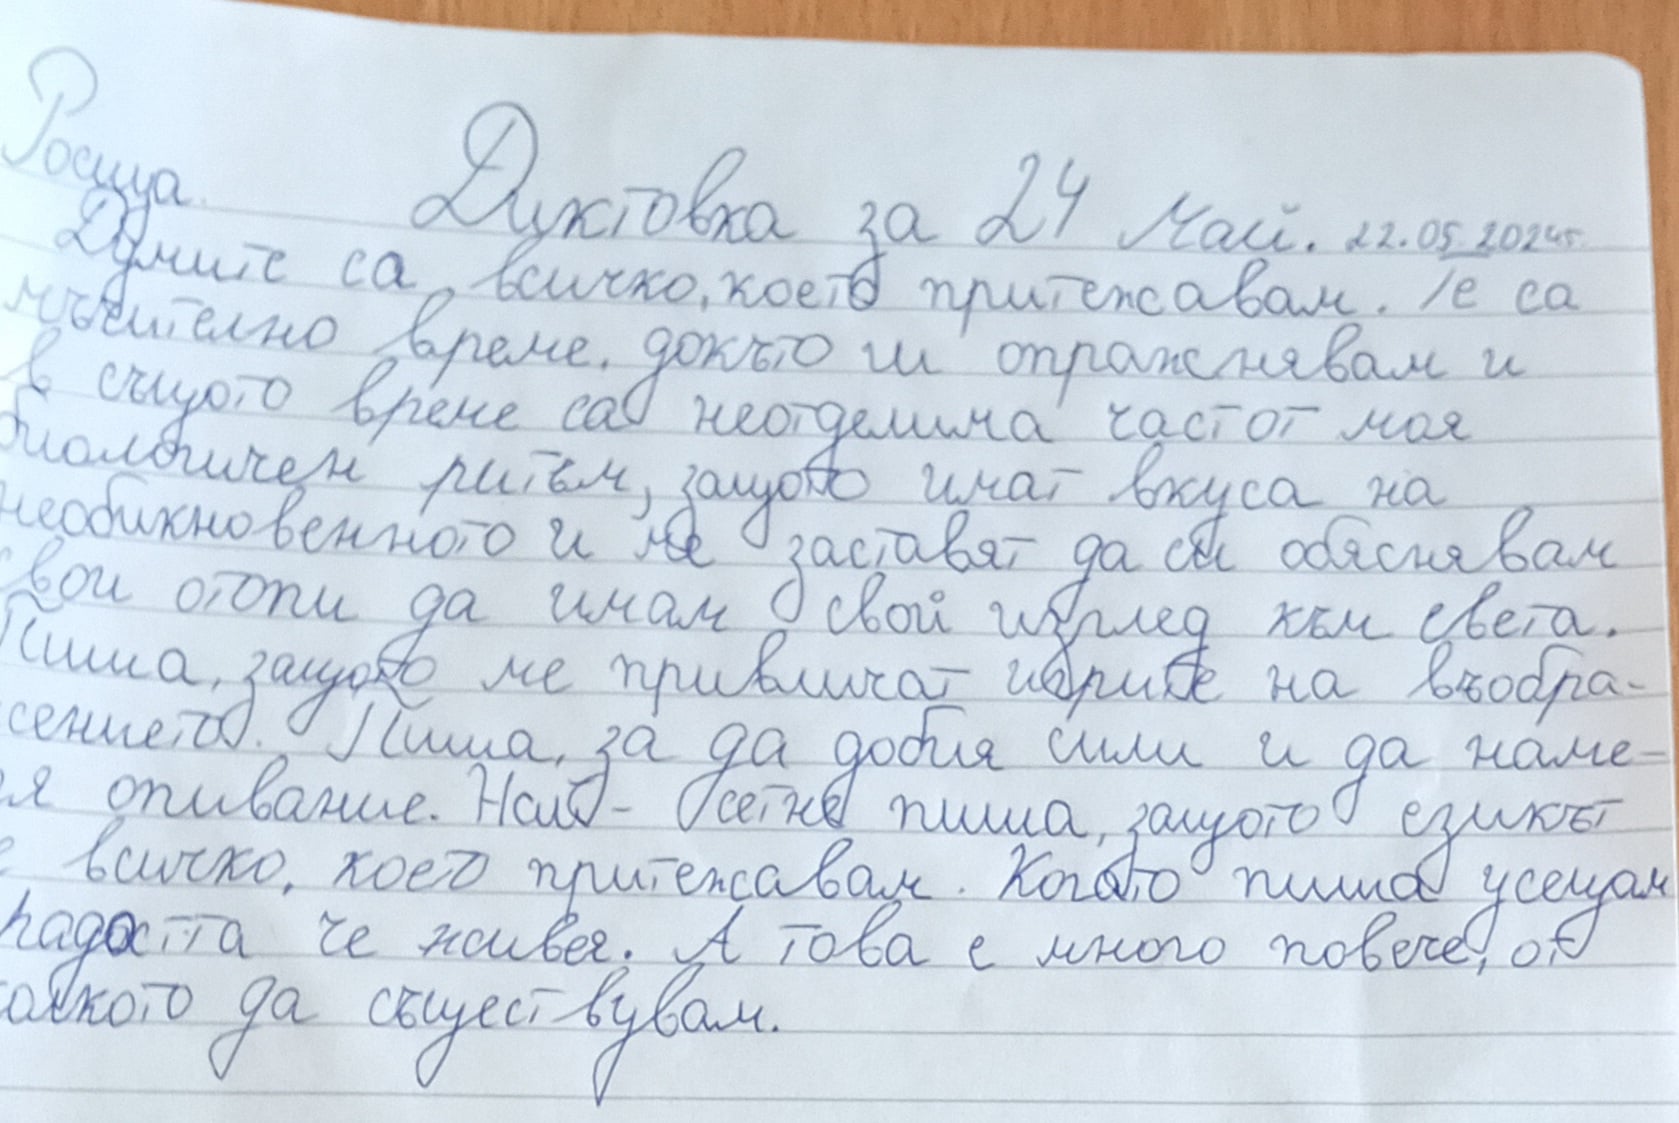 Росица
Диктовка за 24 Май. 22.05.2024г.
Думите са всичко, което притежавам. Те са
мъчително време. докъто ги опражнявам и
в същото време са неотделима част от моя
биологичен ритъм, защото имат вкуса на
необикновенното и ме заставят да си обяснявам
свои опопи да имам свой изглед към света.
Пиша, защото ме привличат игрите на въобра-
жението. Пиша, за да добия сили и да наме-
ря опивание. Най-сетне пиша, защото езикът
е всичко, което притежавам. Когато пиша усещам
радостта че живея. А това е много повече, от
колкото да съществувам.